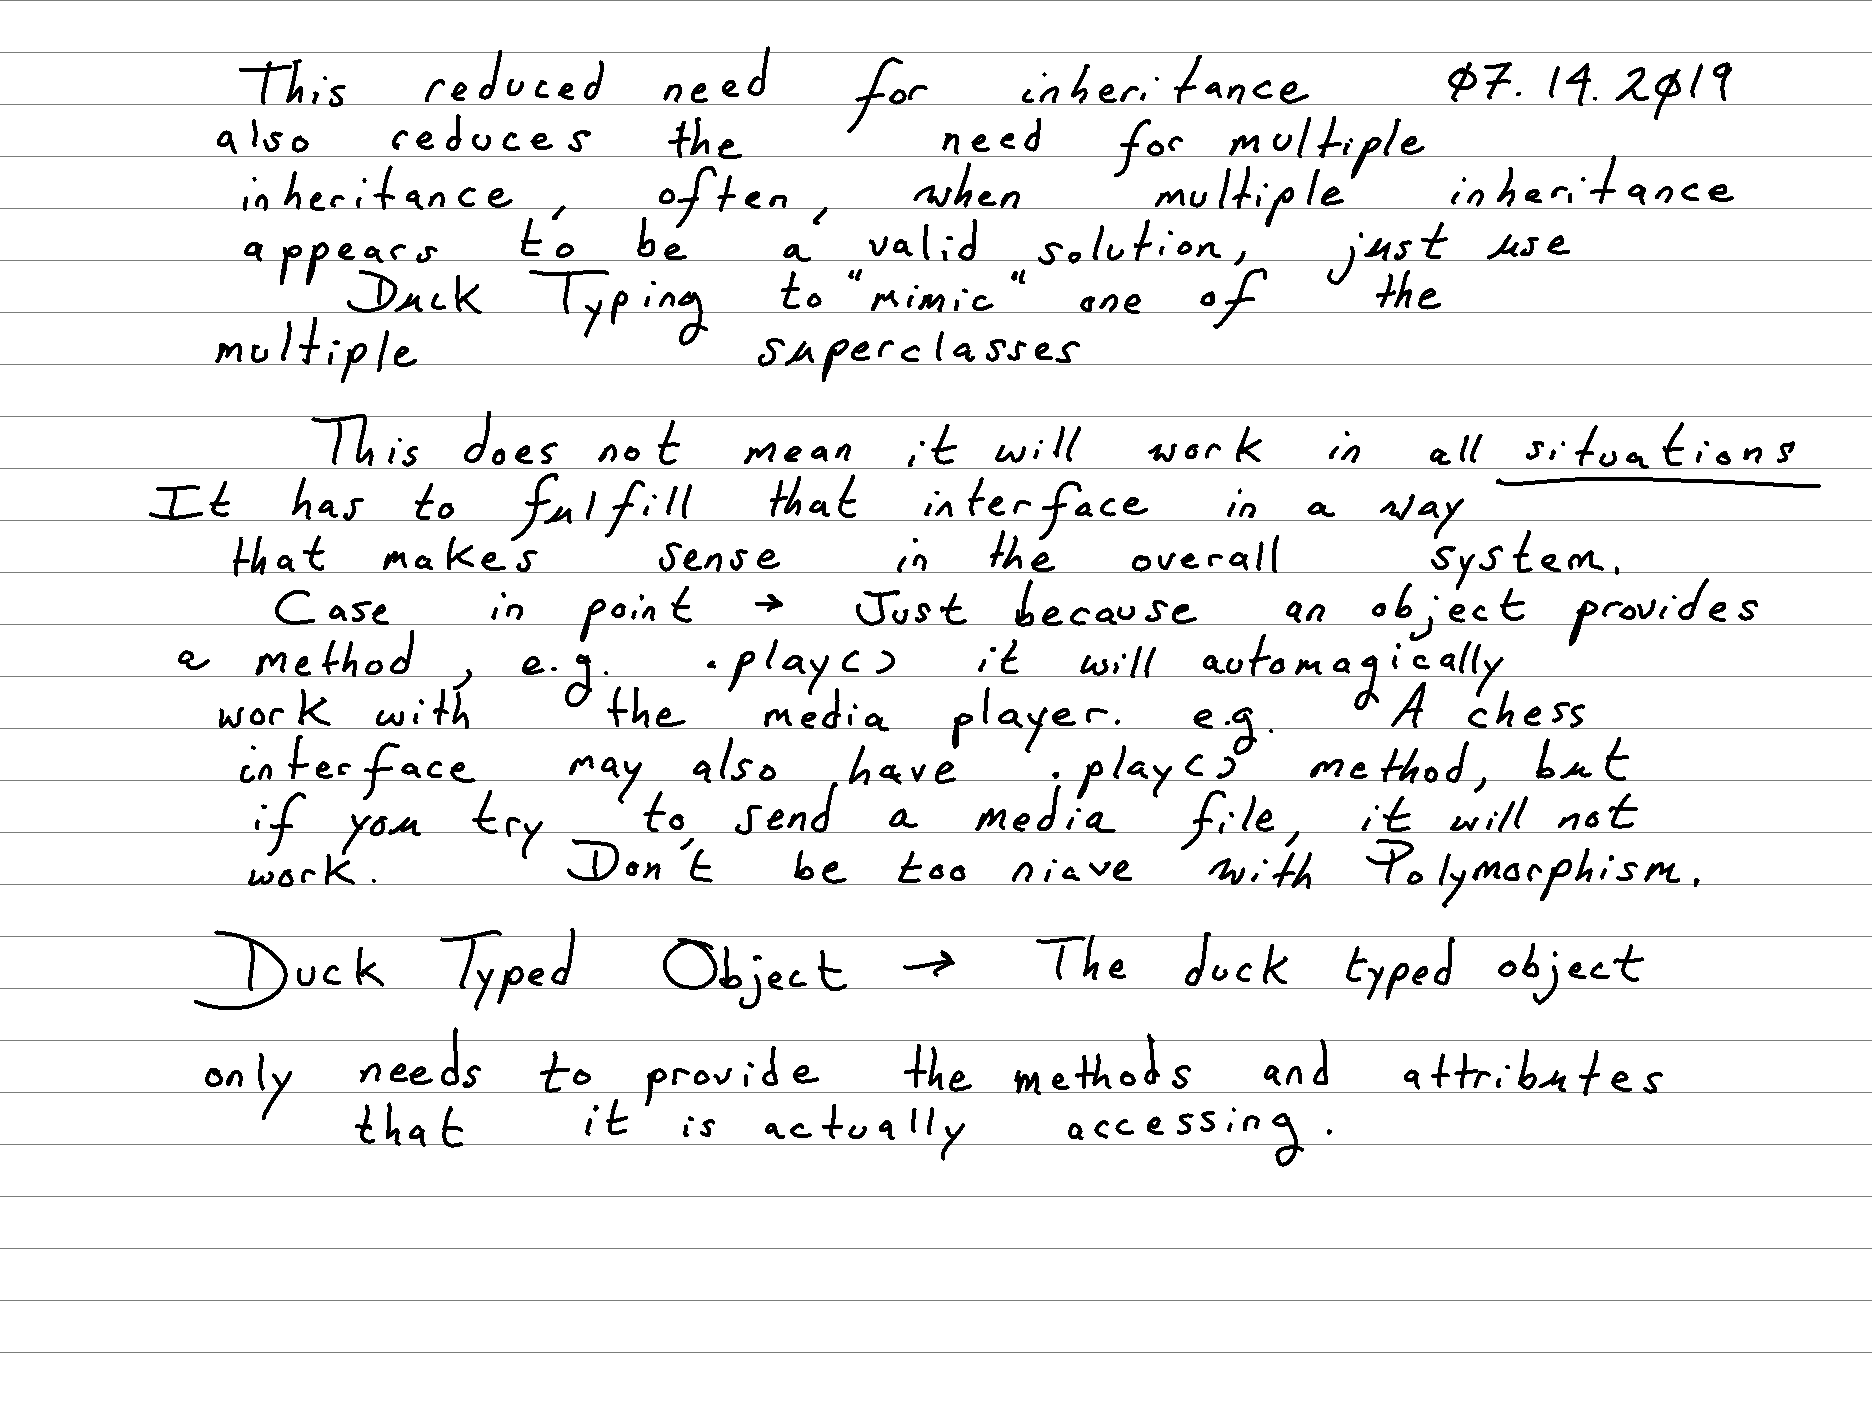 This reduced need for inheritance 07.14.2019
also reduces the need for multiple
inheritance, often, when multiple inheritance
appears to be a valid solution, just use
Duck Typing to "mimic" one of the
multiple superclasses
This does not mean it will work in all situations
It has to fulfill that interface in a way
that makes sense in the overall system.
Case in point → Just because an object provides
a method, e.g. .play() it will automagically
work with the media player. e.g. A chess
interface may also have .play() method, but
if you try to send a media file, it will not
work. Don't be too niave with Polymorphism.
Duck Typed Object → The duck typed object
only needs to provide the methods and attributes
that it is actually accessing.